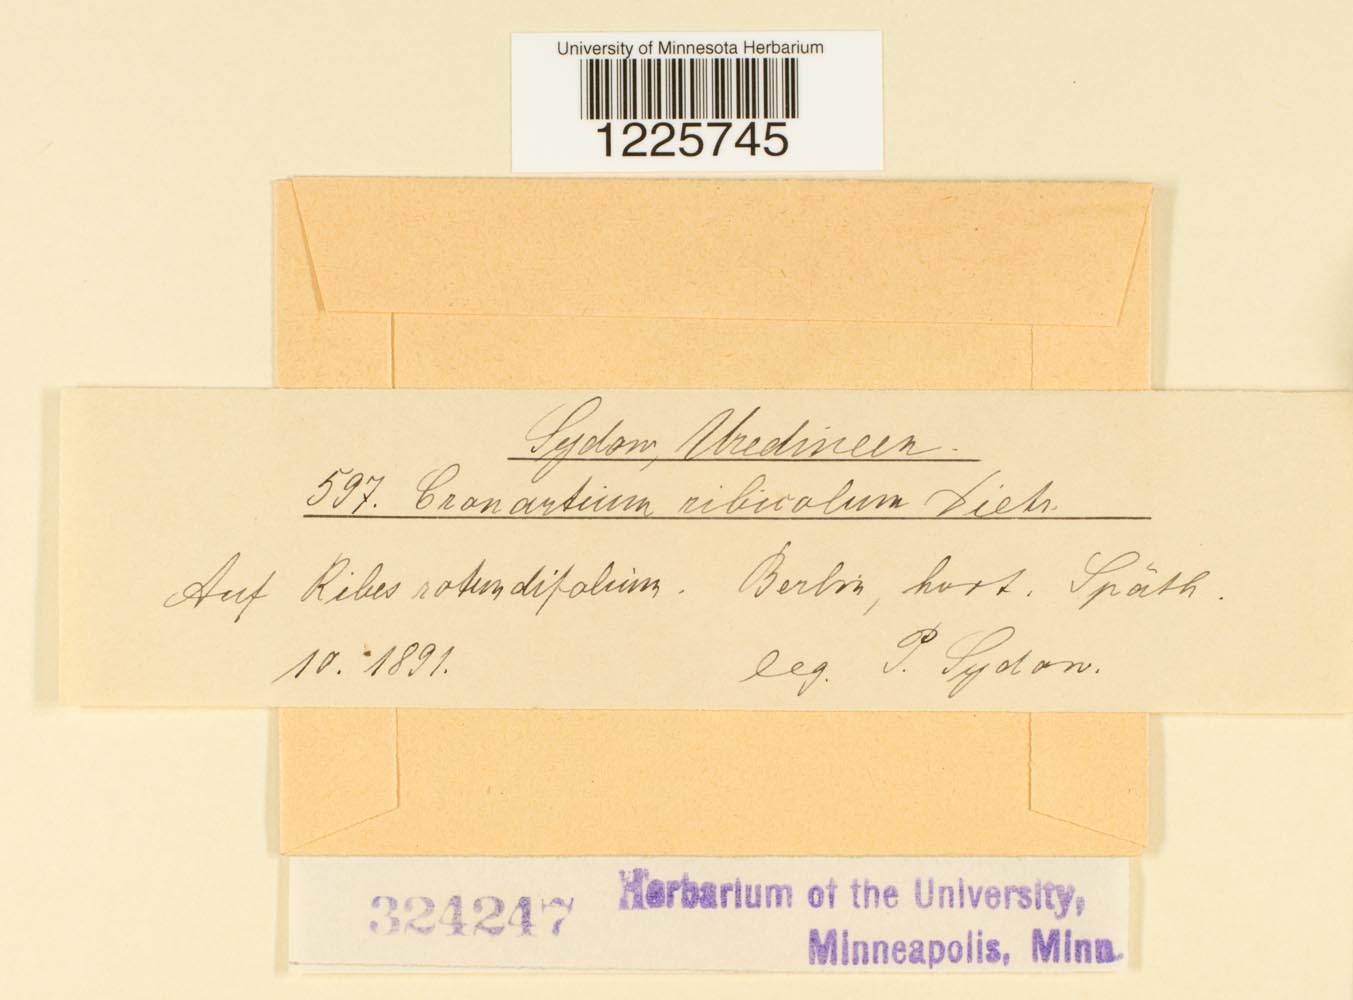 University of Minnesota Herbarium
1225745
Sydow, Uredineen.
597. Cronartium ribicolum Dietr.
Auf Ribes rotundifolium. Berlin, hort. Späth.
10. 1891. leg. P. Sydow.
324247
Herbarium of the University,
Minneapolis, Minn.